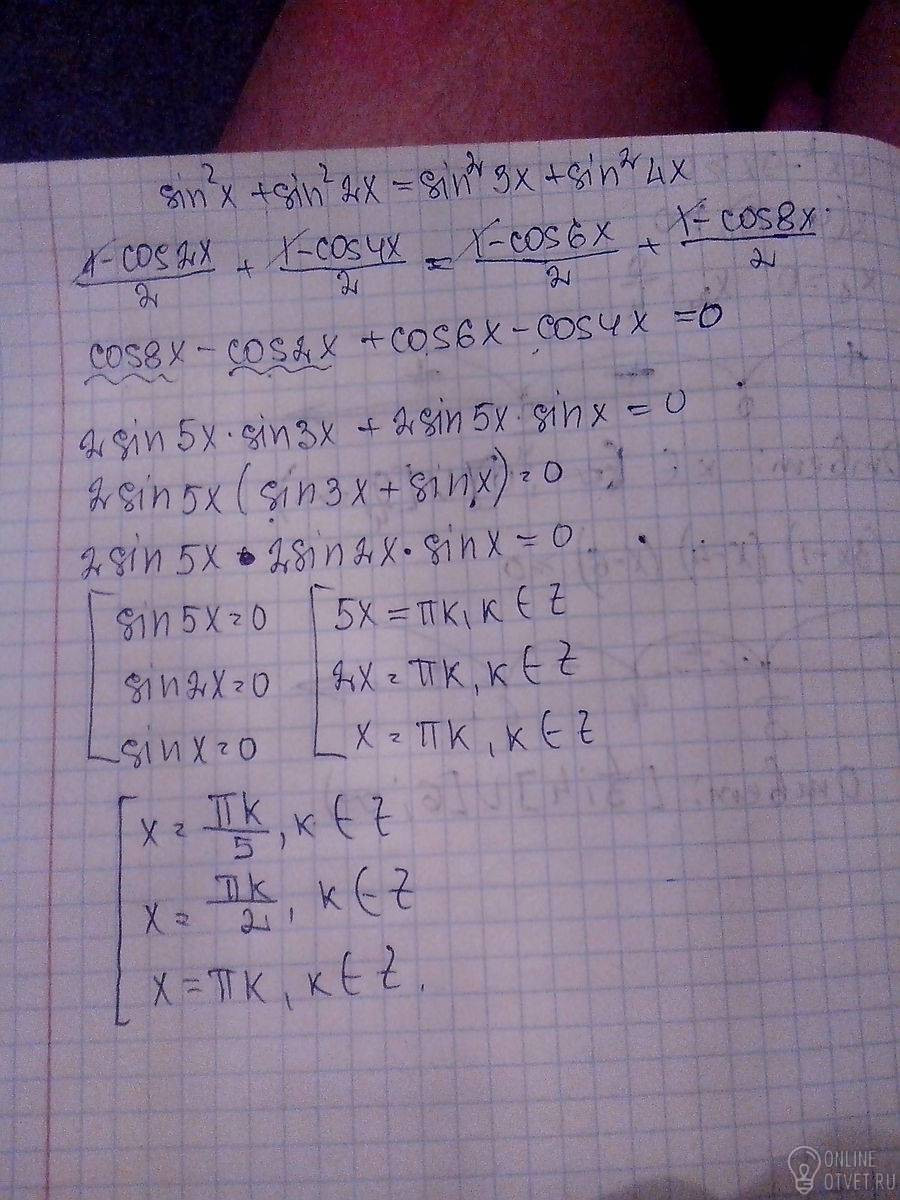 sin²x + sin²2x = sin²3x + sin²4x
(1-cos2x)/2 + (1-cos4x)/2 = (1-cos6x)/2 + (1-cos8x)/2
cos8x - cos2x + cos6x - cos4x = 0
2sin5x·sin3x + 2sin5x·sinx = 0
2sin5x(sin3x + sinx) = 0
2sin5x · 2sin2x · sinx = 0
[sin5x=0 [5x = πк, к ∈ Z
sin2x=0 2x = πк, к ∈ Z
sinx=0 x = πк, к ∈ Z
[x = πк/5, к ∈ Z
x = πк/2, к ∈ Z
x = πк, к ∈ Z.
ONLINE
OTVET.RU